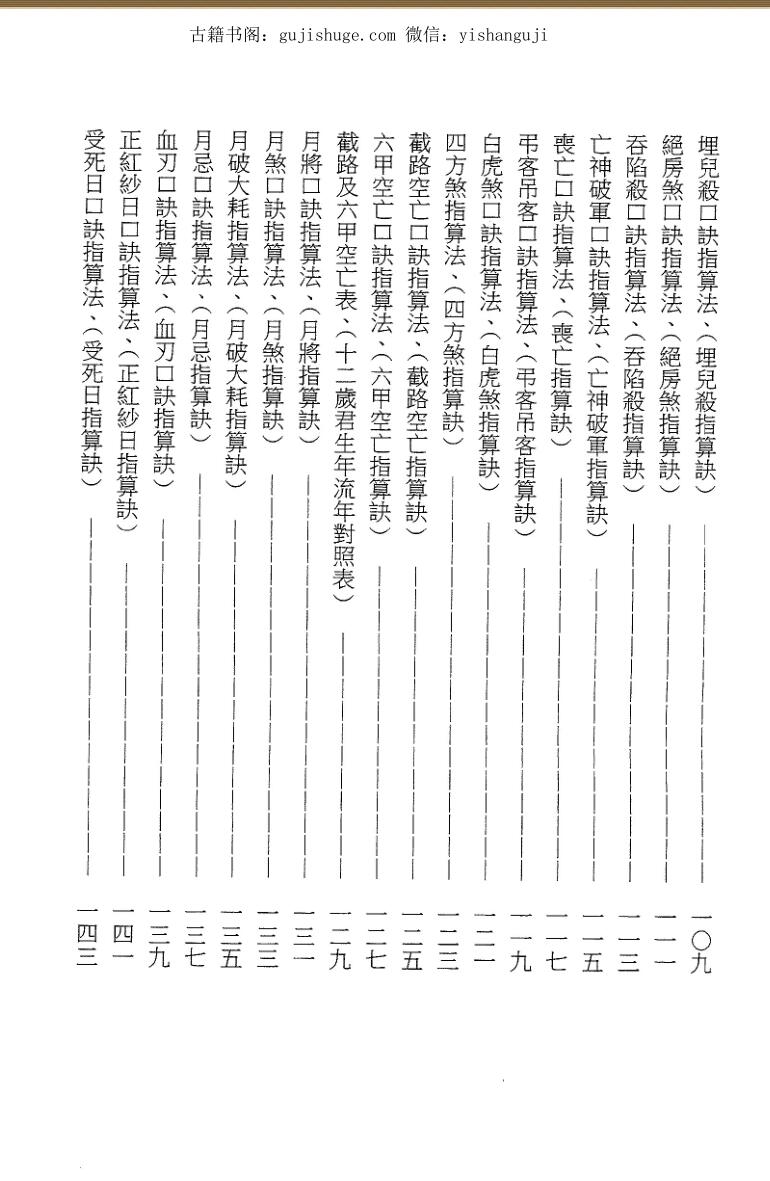 古籍书阁：gujishuge.com 微信：yishanguji
埋兒殺口訣指算法、（埋兒殺指算訣）一〇九
絕房煞口訣指算法、（絕房煞指算訣）一一一
吞陷殺口訣指算法、（吞陷殺指算訣）一一三
亡神破軍口訣指算法、（亡神破軍指算訣）一一五
喪亡口訣指算法、（喪亡指算訣）一一七
弔客吊客口訣指算法、（弔客吊客指算訣）一一九
白虎煞口訣指算法、（白虎煞指算訣）一二一
四方煞指算法、（四方煞指算訣）一二三
截路空亡口訣指算法、（截路空亡指算訣）一二五
六甲空亡口訣指算法、（六甲空亡指算訣）一二七
截路及六甲空亡表、（十二歲君生年流年對照表）一二九
月將口訣指算法、（月將指算訣）一三一
月煞口訣指算法、（月煞指算訣）一三三
月破大耗指算法、（月破大耗指算訣）一三五
月忌口訣指算法、（月忌指算訣）一三七
血刃口訣指算法、（血刃口訣指算訣）一三九
正紅紗日口訣指算法、（正紅紗日指算訣）一四一
受死日口訣指算法、（受死日指算訣）一四三